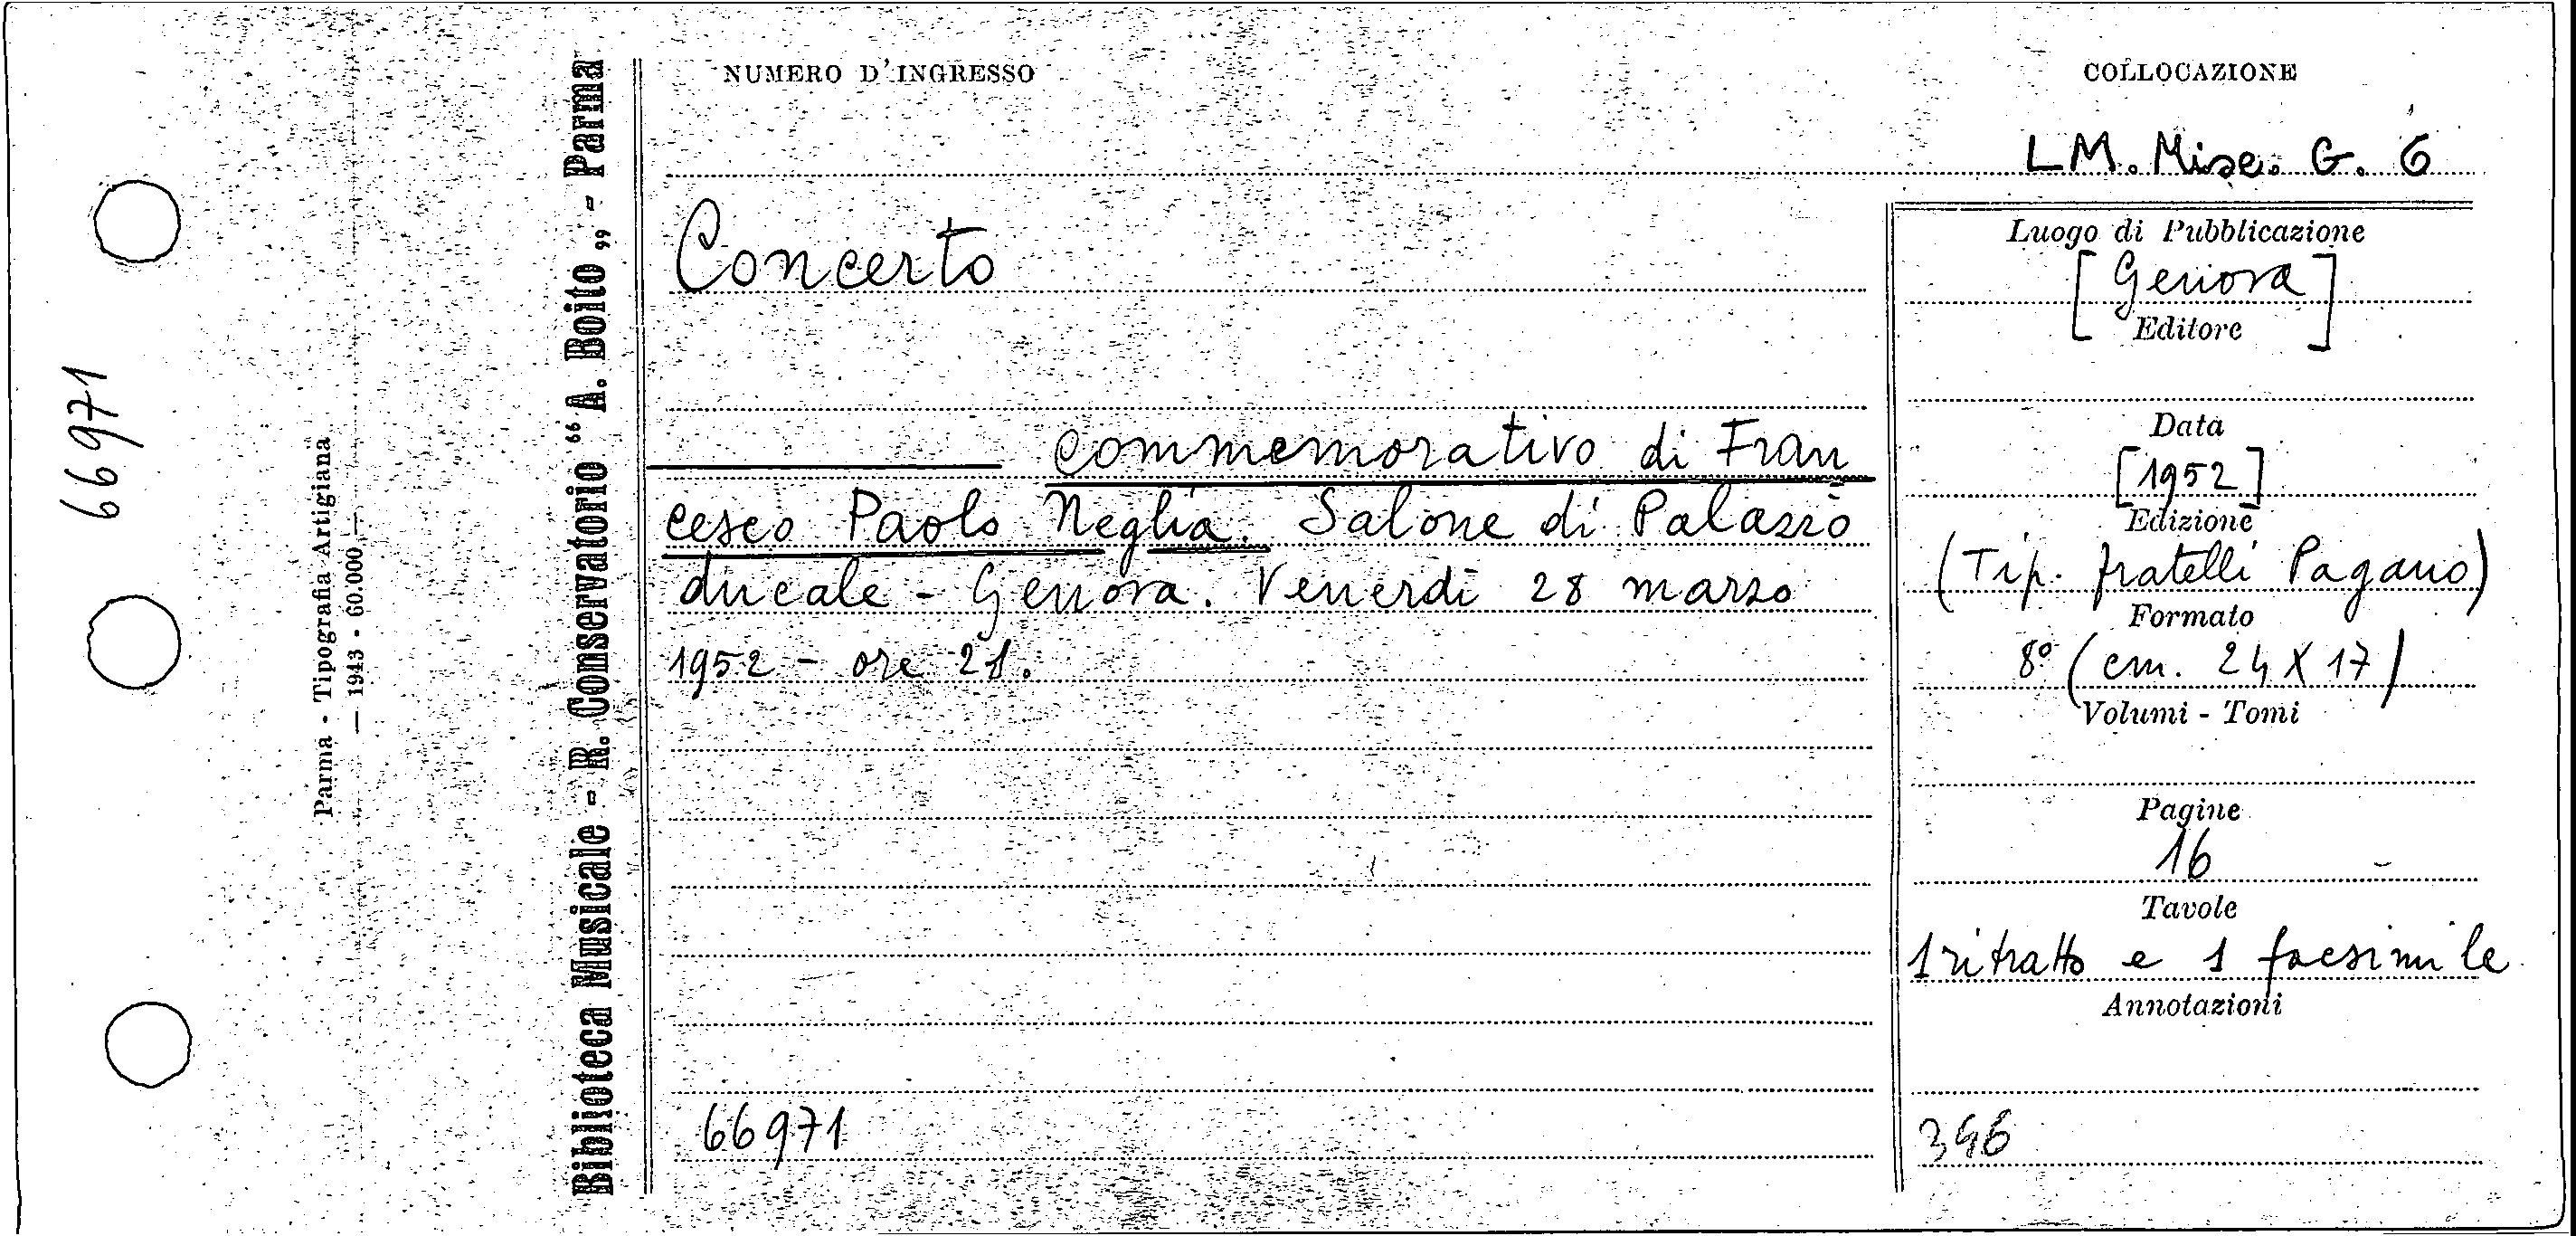 66971
Parma - Tipografia Artigiana
— 1943 - 60.000 —
Biblioteca Musicale - R. Conservatorio “ A. Boito „ - Parma
NUMERO D'INGRESSO
COLLOCAZIONE
LM. Misc. G. 6
Concerto
commemorativo di Fran
cesco Paolo Neglia. Salone di Palazzo
ducale - Genova. Venerdì 28 marzo
1952 - ore 21.
66971
Luogo di Pubblicazione
[Genova]
Editore
Data
[1952]
Edizione
(Tip. fratelli Pagano)
Formato
8° (cm. 24 X 17)
Volumi - Tomi
Pagine
16
Tavole
1 ritratto e 1 facsimile
Annotazioni
346